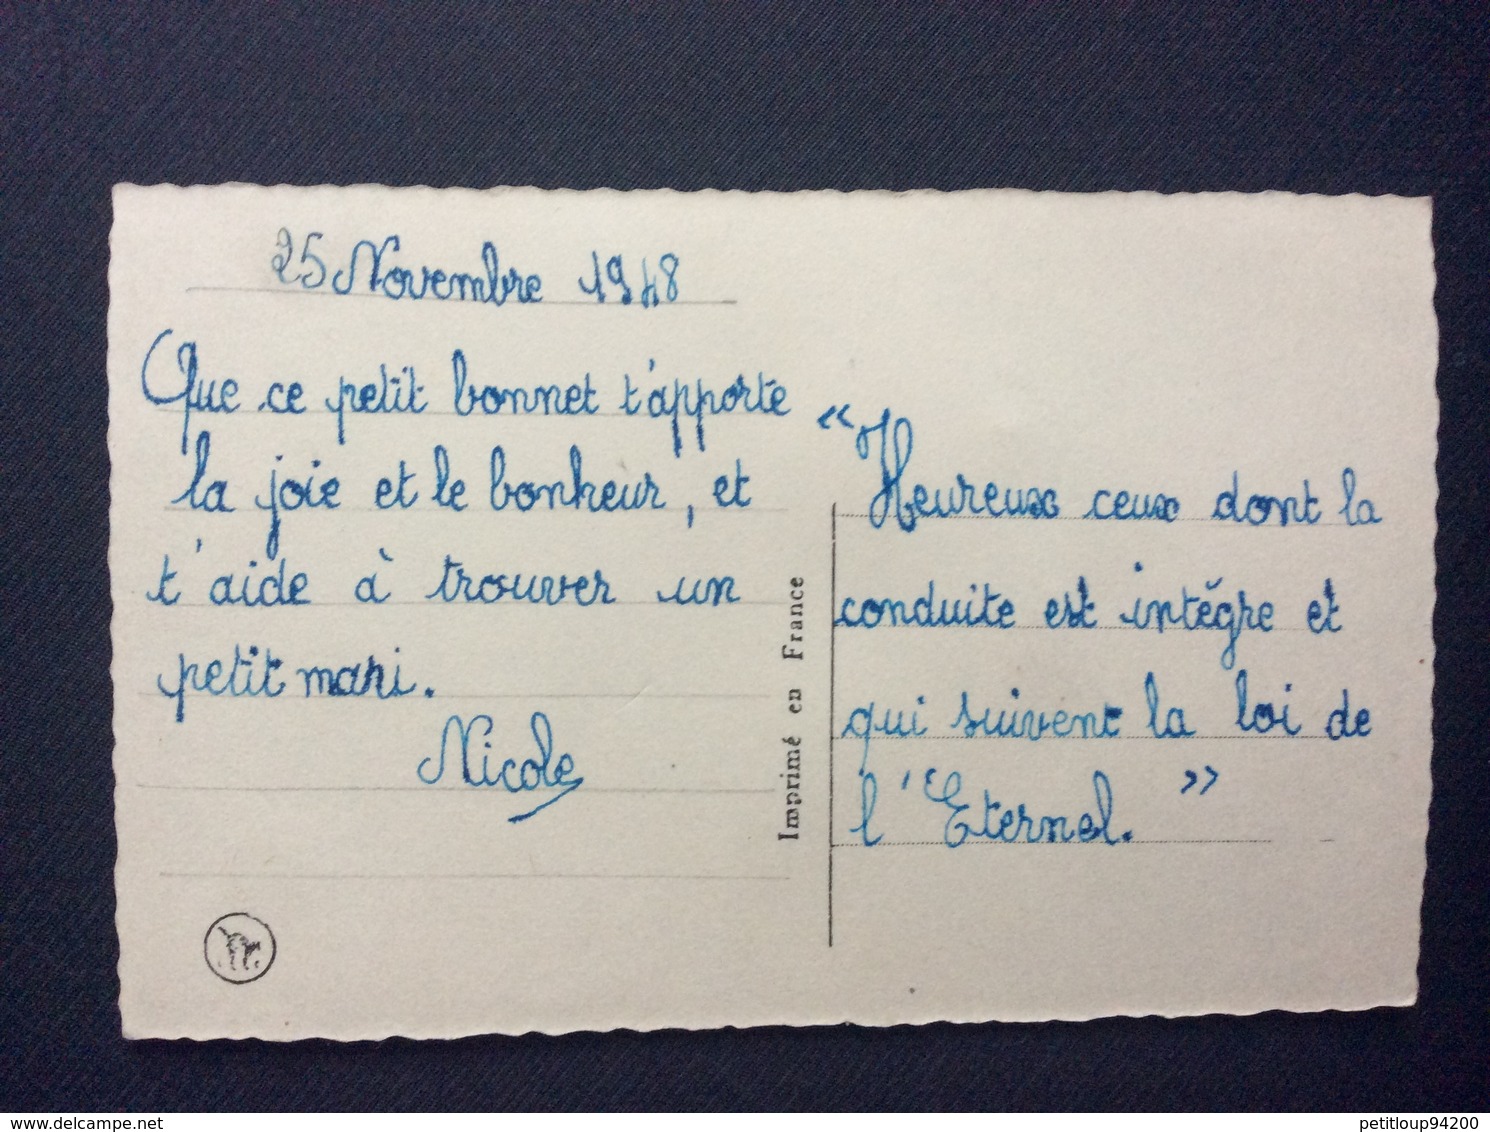 25 Novembre 1948
Que ce petit bonnet t'apporte
la joie et le bonheur, et
t'aide à trouver un
petit mari.
Nicole
Imprimé en France
"Heureux ceux dont la
conduite est intègre et
qui suivent la loi de
l'Eternel."
www.delcampe.net
petitloup94200